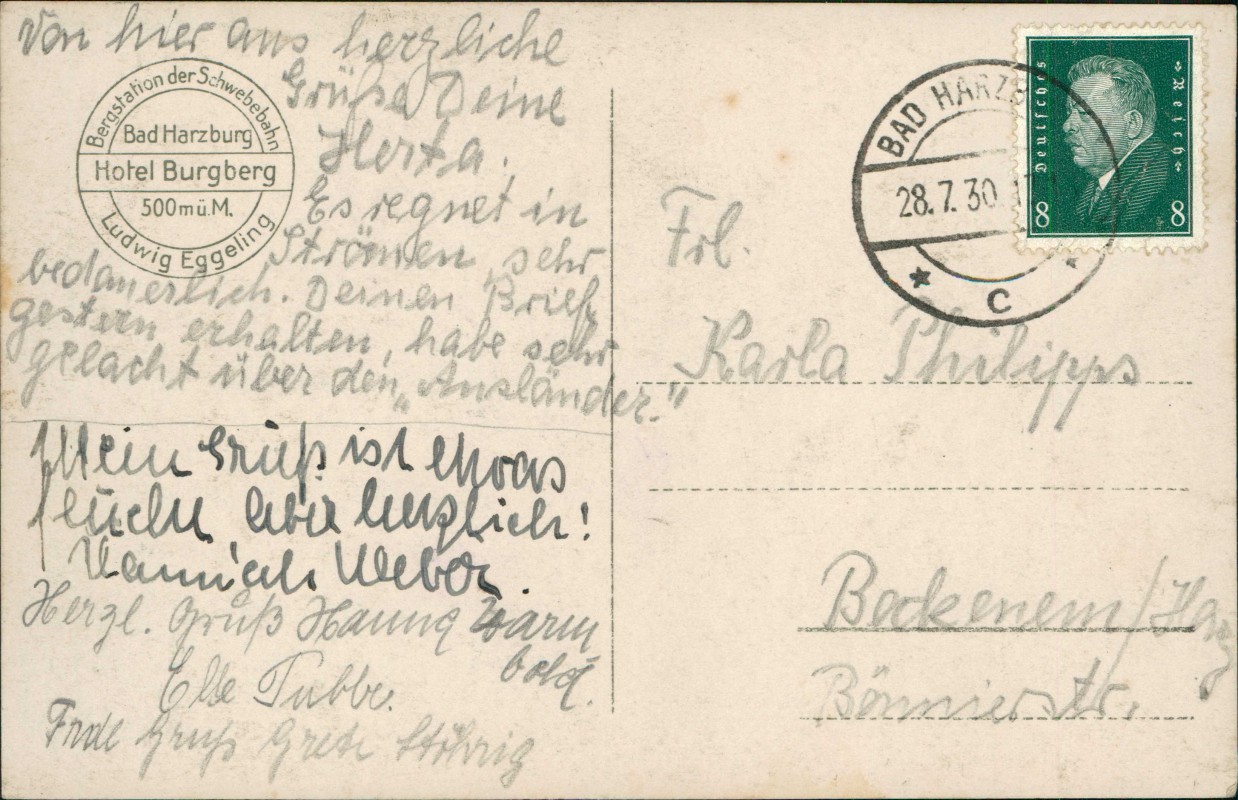 Von hier aus herzliche
Grüße Deine
Herta.
Es regnet in
Strömen, sehr
bedauerlich. Deinen Brief
gestern erhalten, habe sehr
gelacht über den „Ausländer."
Mein Gruß ist etwas
feucht, aber herzlich!
Weber.
Herzl. Gruß Hanna Warm
bold.
Else Tubbe.
Frdl Gruß Grete Störrig
Bergstation der Schwebebahn
Bad Harzburg
Hotel Burgberg
500 m ü. M.
Ludwig Eggeling
BAD HARZB
28.7.30
C
Deutsches Reich
8 8
Frl.
Karla Philipps
Bockenem/Harz
Bönnierstr.